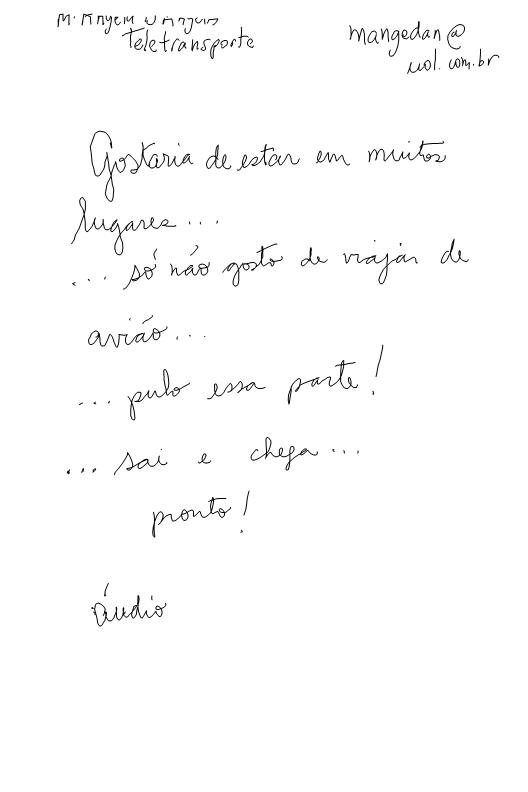 Teletransporte
mangedan@
uol.com.br
Gostaria de estar em muitos
lugares...
... só não gosto de viajar de
avião...
... pulo essa parte!
... sai e chega...
pronto!
áudio